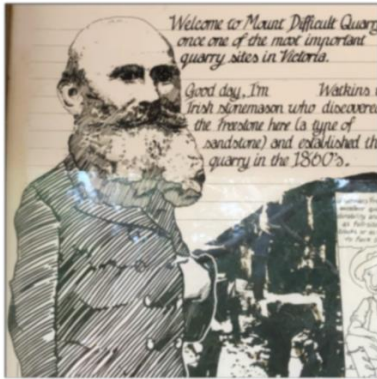 Welcome to Mount Difficult Quarry
once one of the most important
quarry sites in Victoria.
Good day, I'm Watkins
Irish stonemason who discovered
the Freestone here (a type of
sandstone) and established th
quarry in the 1860's.